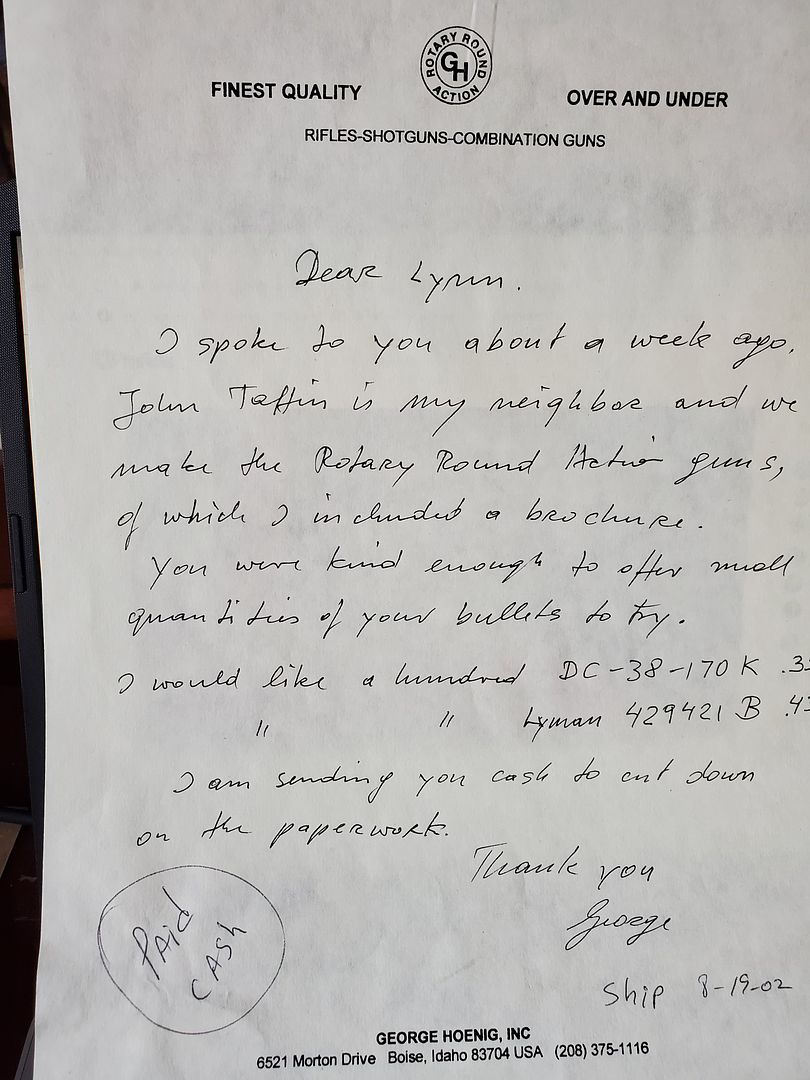 ROTARY ROUND
GH
ACTION
FINEST QUALITY
OVER AND UNDER
RIFLES-SHOTGUNS-COMBINATION GUNS
Dear Lynn.
I spoke to you about a week ago.
John Taffin is my neighbor and we
make the Rotary Round Action guns,
of which I included a brochure.
You were kind enough to offer small
quantities of your bullets to try.
I would like a hundred DC-38-170 K .3
" " Lyman 429421 B .4
I am sending you cash to cut down
on the paperwork.
Thank you
George
PAid
CASH
Ship 8-19-02
GEORGE HOENIG, INC
6521 Morton Drive Boise, Idaho 83704 USA (208) 375-1116